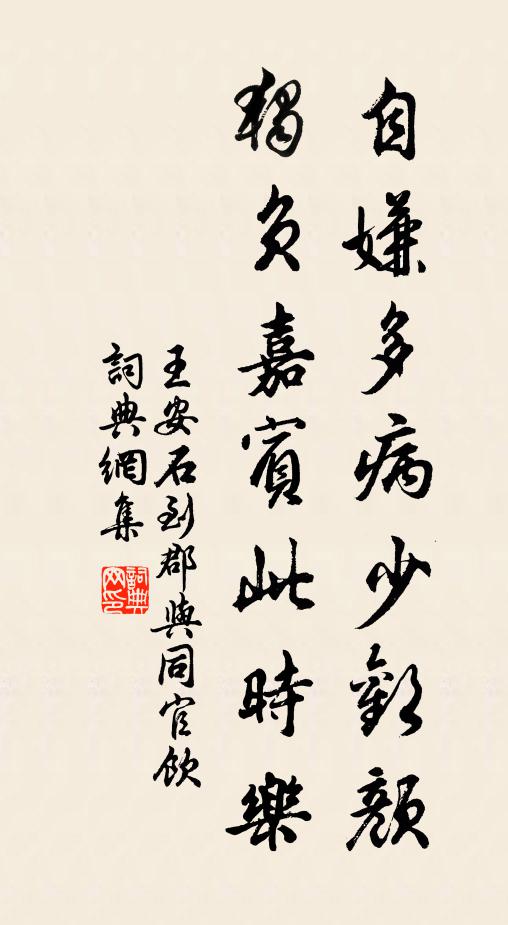 自嫌多病少歡顏
獨負嘉賓此時樂
王安石到郡與同官飲
詞典網集
詞典
网印